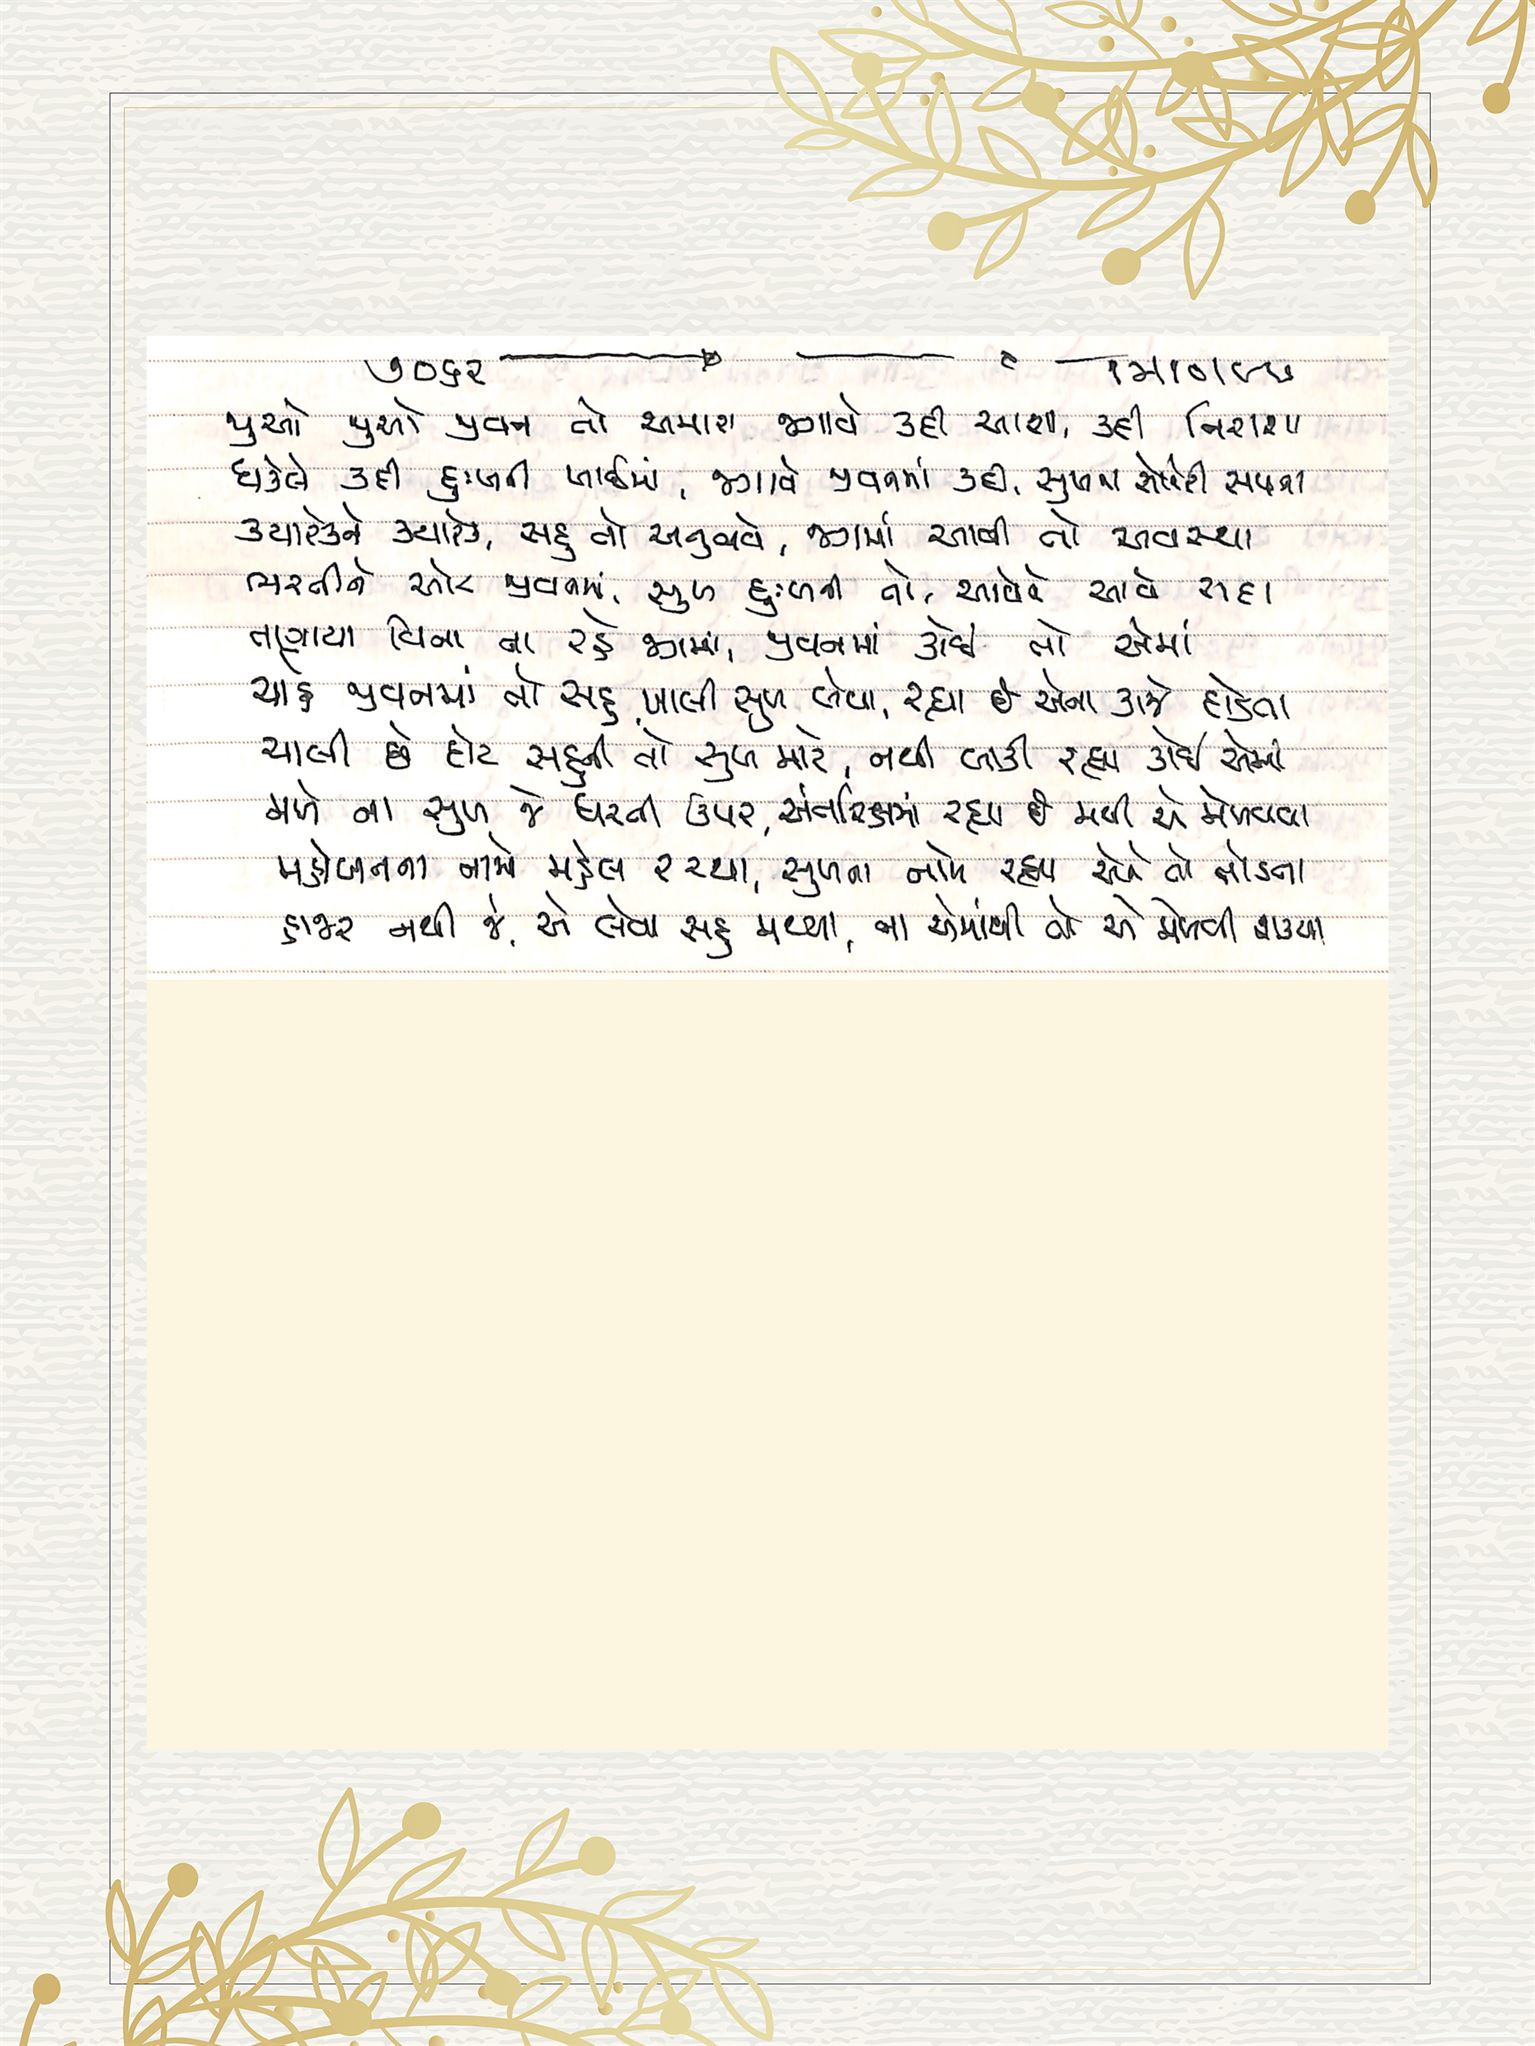 ૭૦૬૨
જુઓ જુઓ જીવન તો તમાશા જગાવે કદી આશા, કદી નિરાશા
ધકેલે કદી દુઃખની ખાઈમાં, જગાવે જીવનમાં કદી, સુખના સોનેરી સપના
ક્યારેકને ક્યારેક, સહુ તો અનુભવે, જગમાં આવી તો અવસ્થા
ભરતીને ઓટ જીવનમાં, સુખ દુઃખની તો, આવેને આવે સદા
તણાયા વિના ના રહે જગમાં, જીવનમાં કોઈ તો એમાં
ચાહે જીવનમાં તો સહુ ખાલી સુખ લેવા, રહ્યા છે એના કાજે દોડતા
ચાલી છે દોટ સહુની તો સુખ માટે, નથી બાકી રહ્યા કોઈ એમાં
મળે ના સુખ જે ધરતી ઉપર, અંતરિક્ષમાં રહ્યા છે મથી એ મેળવવા
મનોબળના નામે મહેલ રચ્યા, સુખના નામે રહ્યા એને તો તોડતા
હાજર નથી જે, એ લેવા સહુ મથ્યા, ના એમાંથી તો એ મેળવી શક્યા